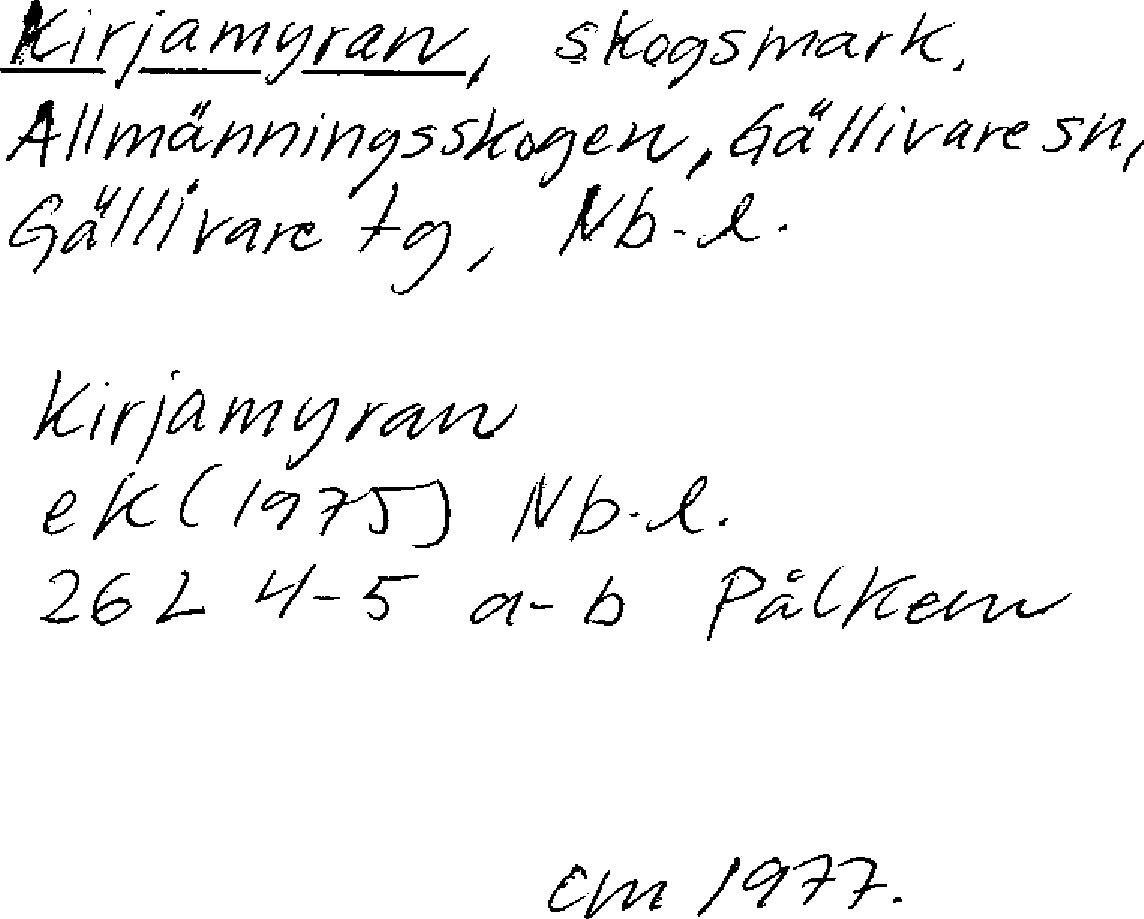 Kirjamyran, skogsmark.
Allmänningsskogen, Gällivare sn,
Gällivare tg, Nb.l.
Kirjamyran
ek (1975) Nb.l.
26 L 4-5 a-b Pålkem
cm 1977.